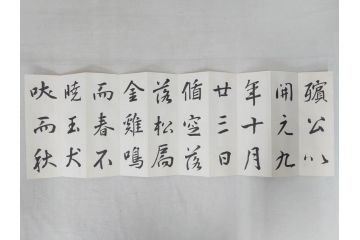 殯公以
開元九
年十月
廿三日
循空落
落松扃
金雞鳴
而春不
曉玉犬
吠而秋